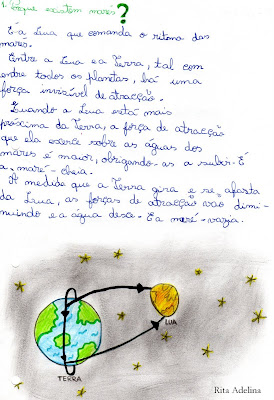 1. Porque existem marés?
É a Lua que comanda o ritmo das
marés.
Entre a Lua e a Terra, tal com
entre todos os planetas, há uma
força invisível de atracção.
Quando a Lua está mais
próxima da Terra, a força de atracção
que ela exerce sobre as águas dos
mares é maior, obrigando-as a subir. É
a maré-cheia.
À medida que a Terra gira e se afasta
da Lua, as forças de atracção vão dimi-
nuindo e a água desce. É a maré-vazia.
LUA
TERRA
Rita Adelina